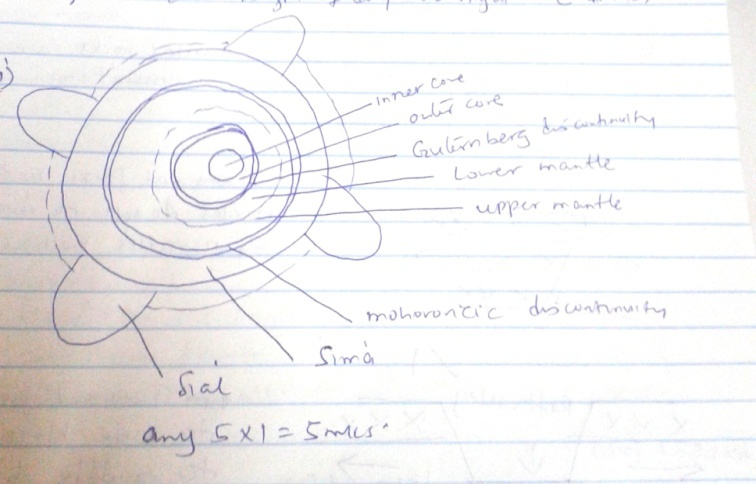 b)
inner core
outer core
Guternberg discontinuity
Lower mantle
upper mantle
mohorovicic discontinuity
Sima
Sial
any 5 x 1 = 5mks.